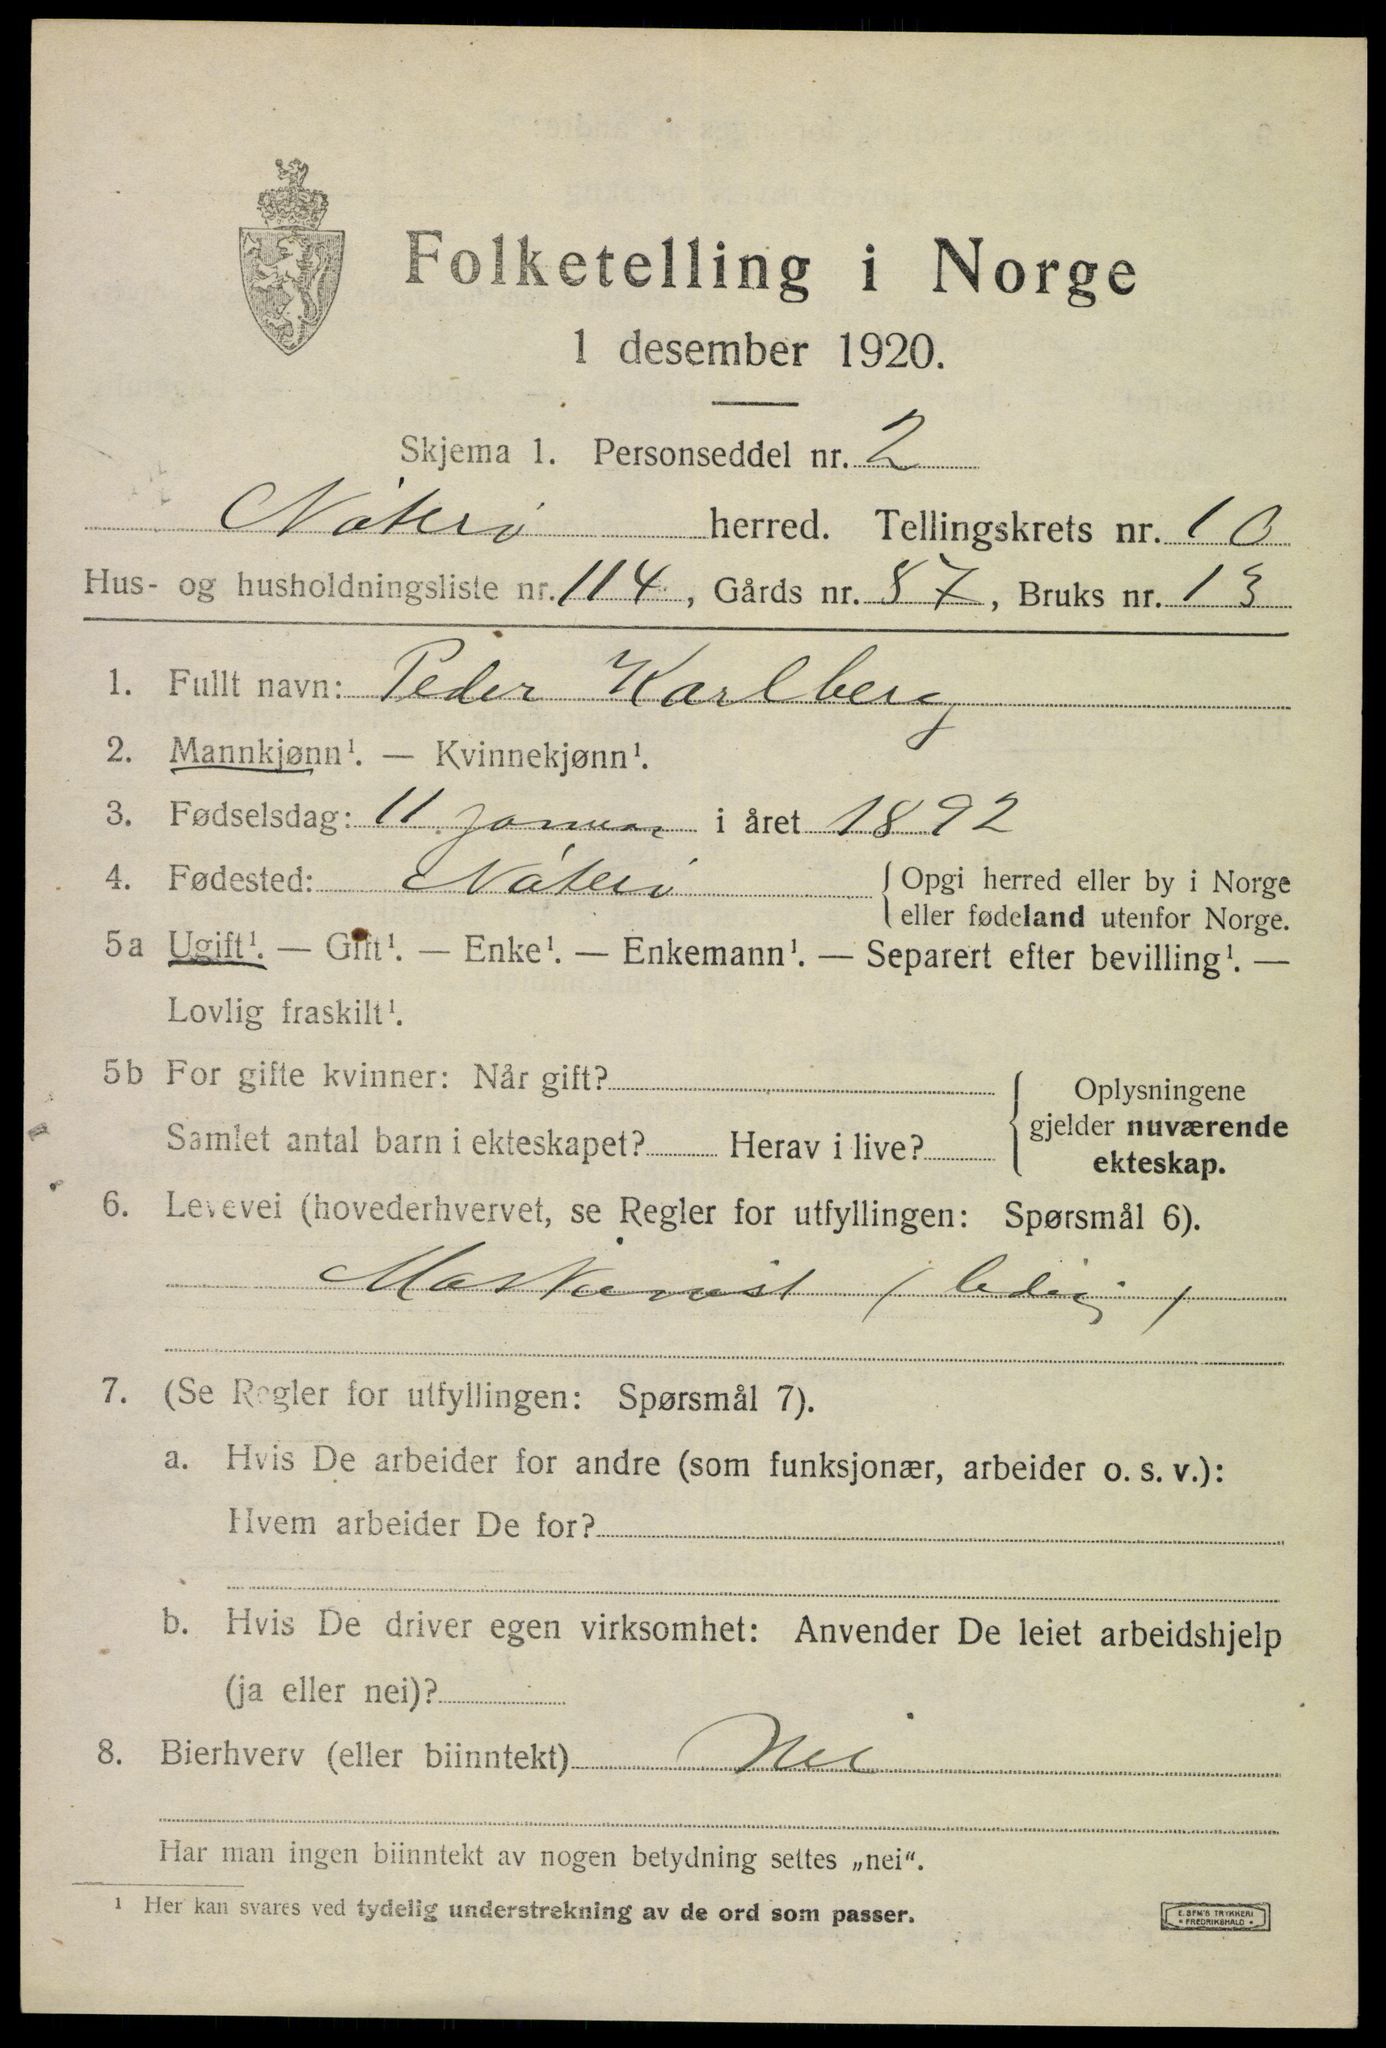 Folketelling i Norge
1 desember 1920.
Skjema 1. Personseddel nr. 2
Nøterø herred. Tellingskrets nr. 10
Hus- og husholdningsliste nr. 114, Gårds nr. 87, Bruks nr. 13
1. Fullt navn: Peder Karlberg
2. Mannkjønn¹. — Kvinnekjønn¹.
3. Fødselsdag: 11 januar i året 1892
4. Fødested: Nøterø { Opgi herred eller by i Norge
eller fødeland utenfor Norge.
5a Ugift¹. — Gift¹. — Enke¹. — Enkemann¹. — Separert efter bevilling¹. —
Lovlig fraskilt¹.
5b For gifte kvinner: Når gift?
Samlet antal barn i ekteskapet? Herav i live?
{ Oplysningene
gjelder nuværende
ekteskap.
6. Levevei (hovederhvervet, se Regler for utfyllingen: Spørsmål 6).
Maskinist (ledig)
7. (Se Regler for utfyllingen: Spørsmål 7).
a. Hvis De arbeider for andre (som funksjonær, arbeider o. s. v.):
Hvem arbeider De for?
b. Hvis De driver egen virksomhet: Anvender De leiet arbeidshjelp
(ja eller nei)?
8. Bierhverv (eller biinntekt) Nei
Har man ingen biinntekt av nogen betydning settes „nei“.
¹ Her kan svares ved tydelig understrekning av de ord som passer.
E. SEM'S TRYKKERI
• FREDRIKSHALD •